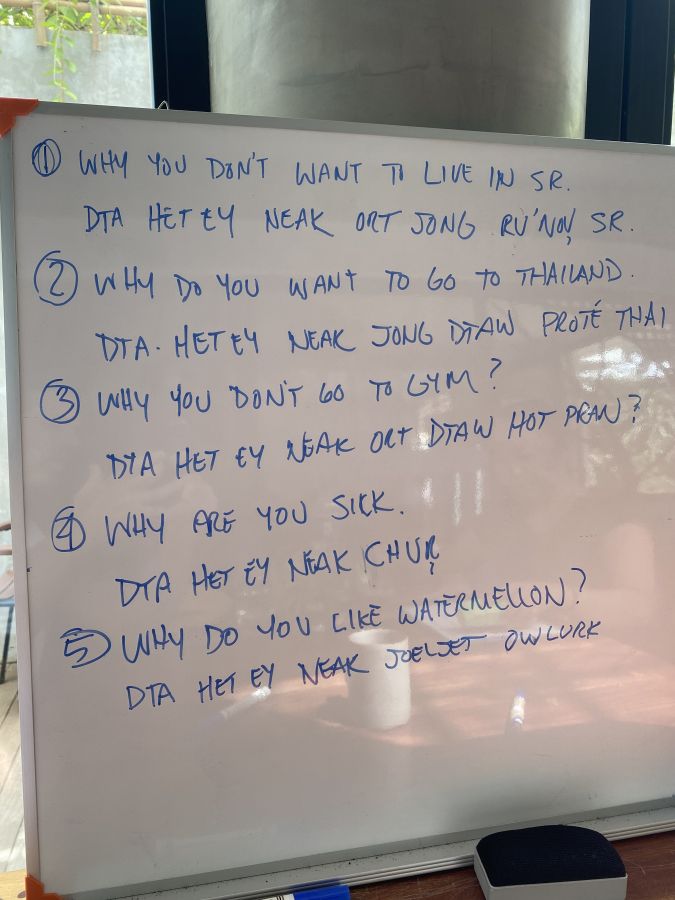 ① WHY YOU DON'T WANT TO LIVE IN SR.
DTA HET EY NEAK ORT JONG RU'NOV SR.
② WHY DO YOU WANT TO GO TO THAILAND.
DTA. HET EY NEAK JONG DTAW PROTÉ THAI
③ WHY YOU DON'T GO TO GYM?
DTA HET EY NEAK ORT DTAW HOT PRAN?
④ WHY ARE YOU SICK.
DTA HET EY NEAK CHUR,
⑤ WHY DO YOU LIKE WATERMELLON?
DTA HET EY NEAK JOELJET OWLURK